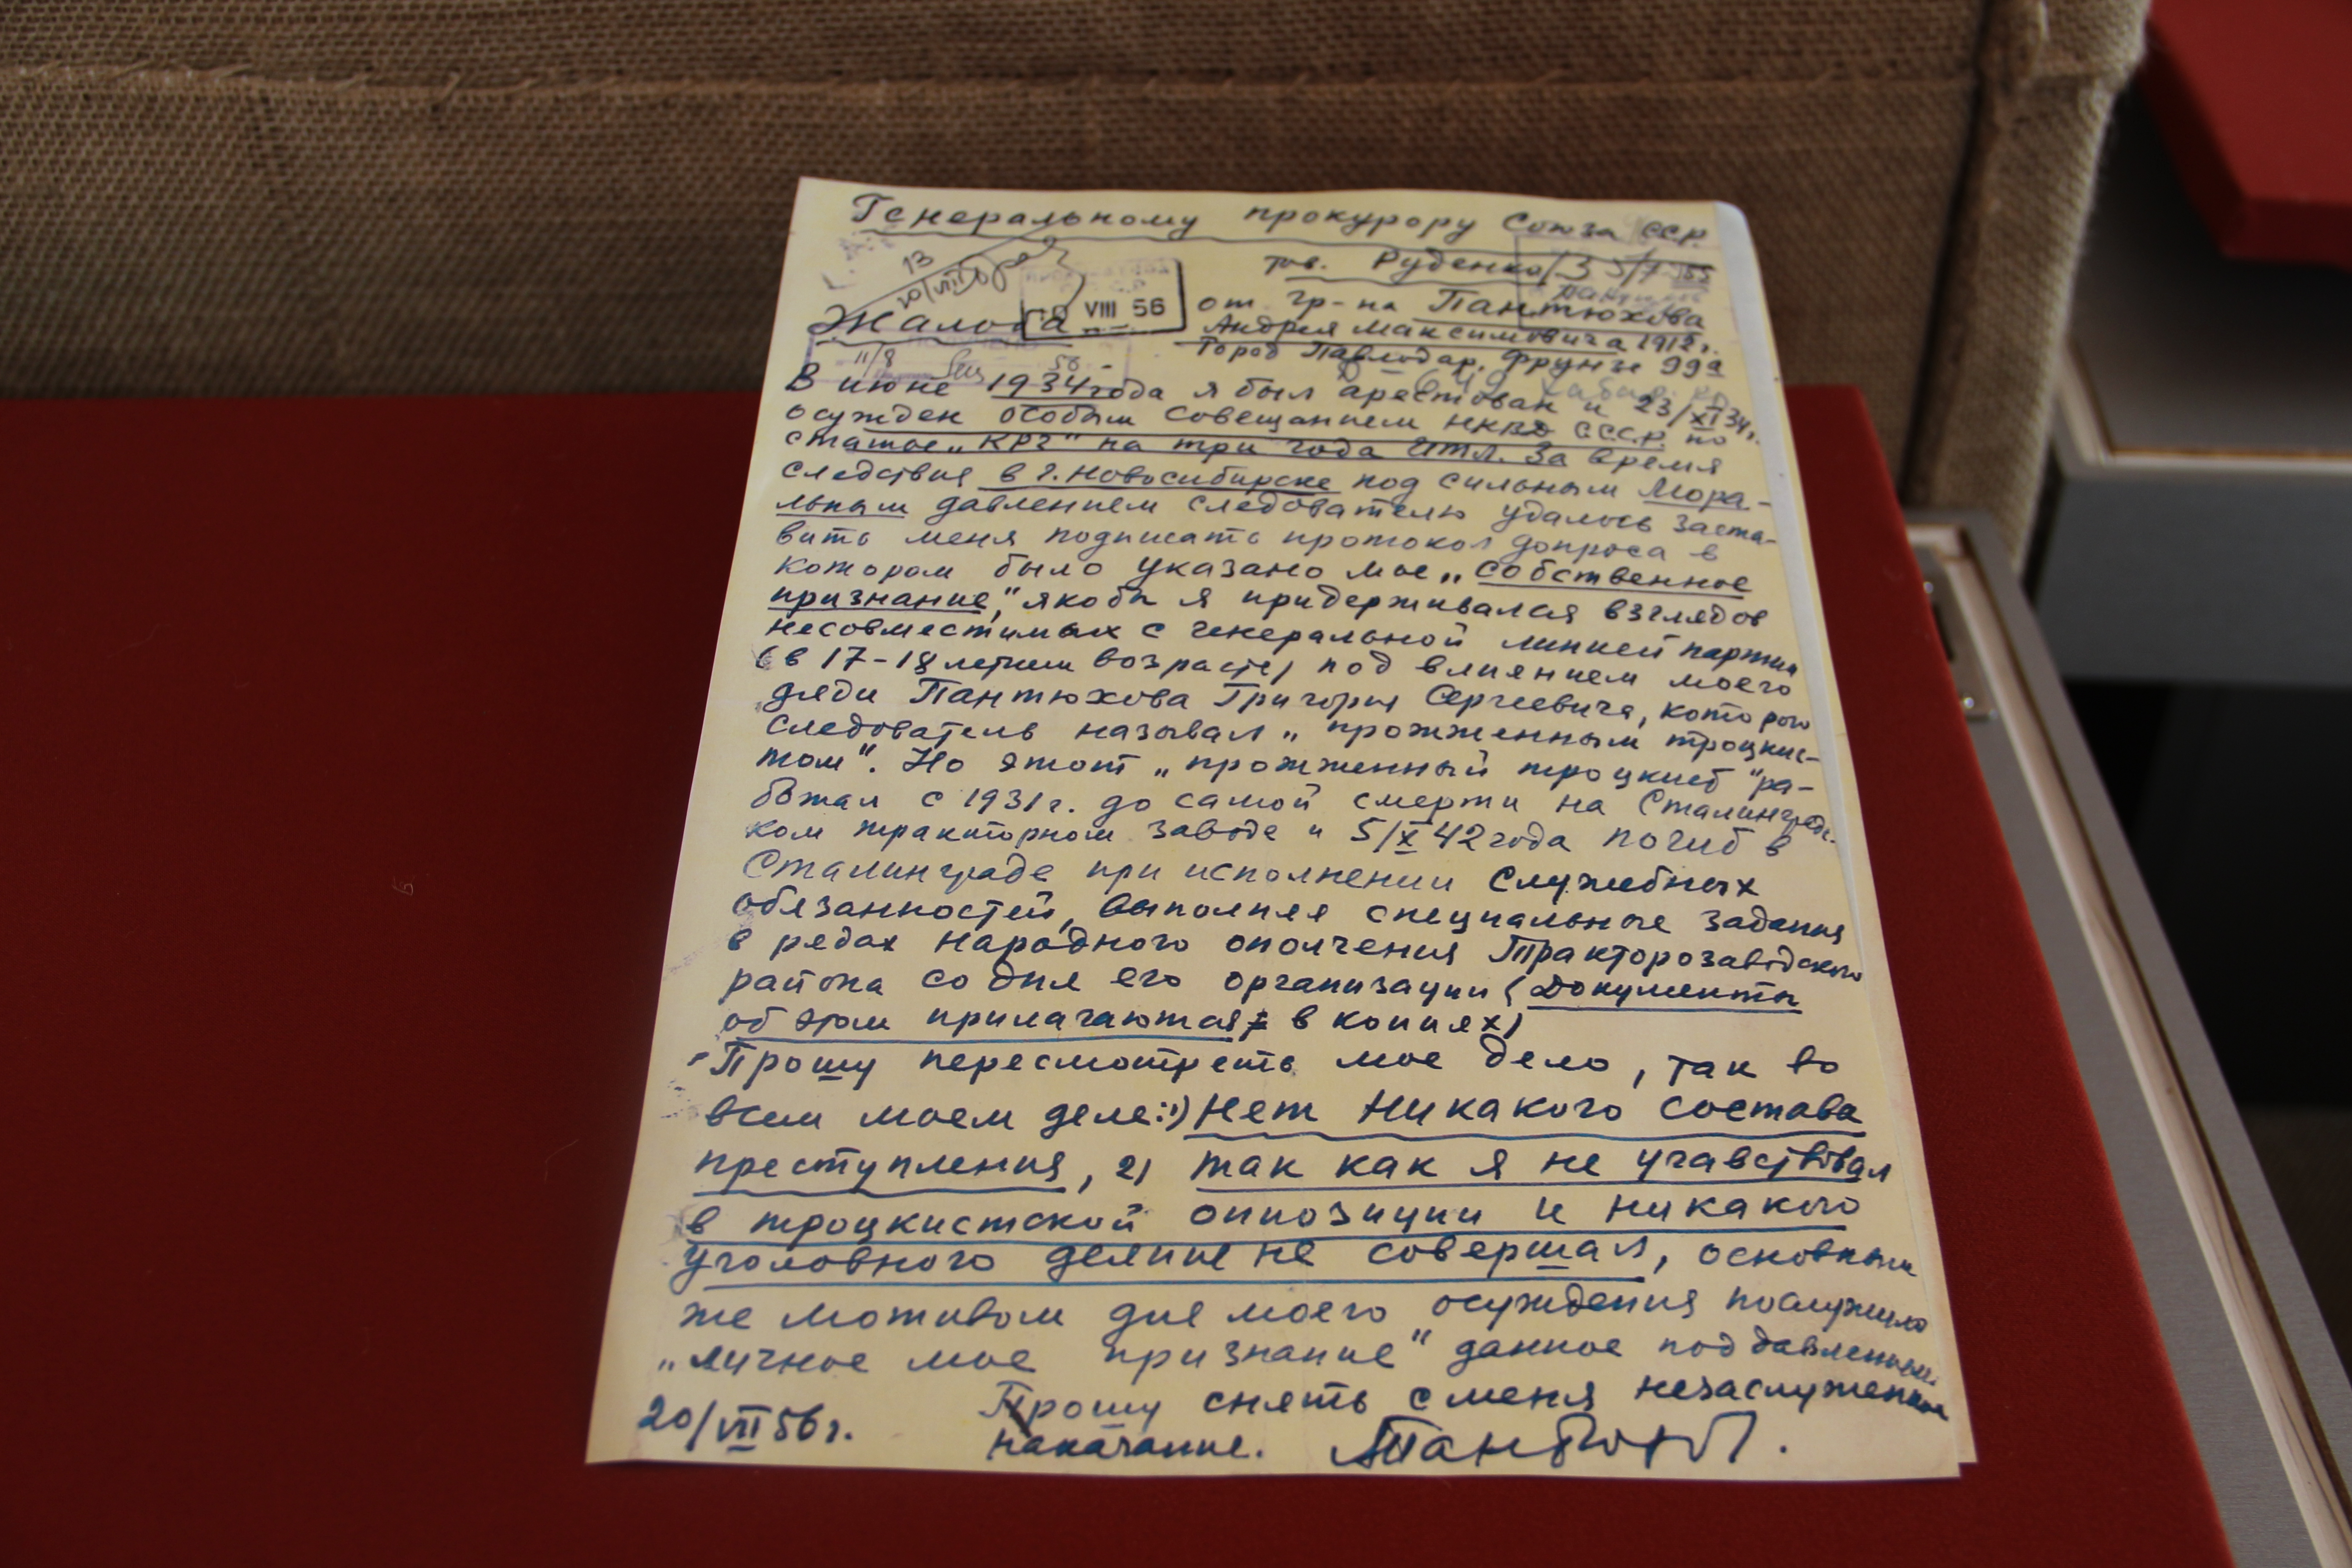 Генеральному прокурору Союза ССР
тов. Руденко
от гр-на Пантюхова
Андрея Максимовича 1912г.
Город Павлодар, Фрунзе 99а
13
VIII 56
Жалоба
11/8
56
В июне 1934 года я был арестован и 23/XI 34г.
осужден особым совещанием НКВД СССР. по
статье „КРГ" на три года ИТЛ. За время
следствия в г. Новосибирске под сильным мора-
льным давлением следователю удалось заста-
вить меня подписать протокол допроса в
котором было указано мое „собственное
признание", якобы я придерживался взглядов
несовместимых с генеральной линией партии
(в 17-18 летнем возрасте) под влиянием моего
дяди Пантюхова Григория Сергеевича, которого
следователь называл „прожженным троцкис-
том". Но этот „прожженный троцкист" ра-
ботал с 1931г. до самой смерти на Сталинградс-
ком тракторном заводе и 5/X 42 года погиб в
Сталинграде при исполнении служебных
обязанностей, выполняя специальные задания
в рядах народного ополчения Тракторозаводского
района со дня его организации (Документы
об этом прилагаются в копиях)
Прошу пересмотреть мое дело, так во
всем моем деле: 1) Нет никакого состава
преступления, 2) так как я не учавствовал
в троцкистской оппозиции и никакого
уголовного деяние не совершал, основным
же мотивом для моего осуждения послужило
„личное мое признание" данное под давлением.
Прошу снять с меня незаслуженное
наказание.
20/VII 56г.